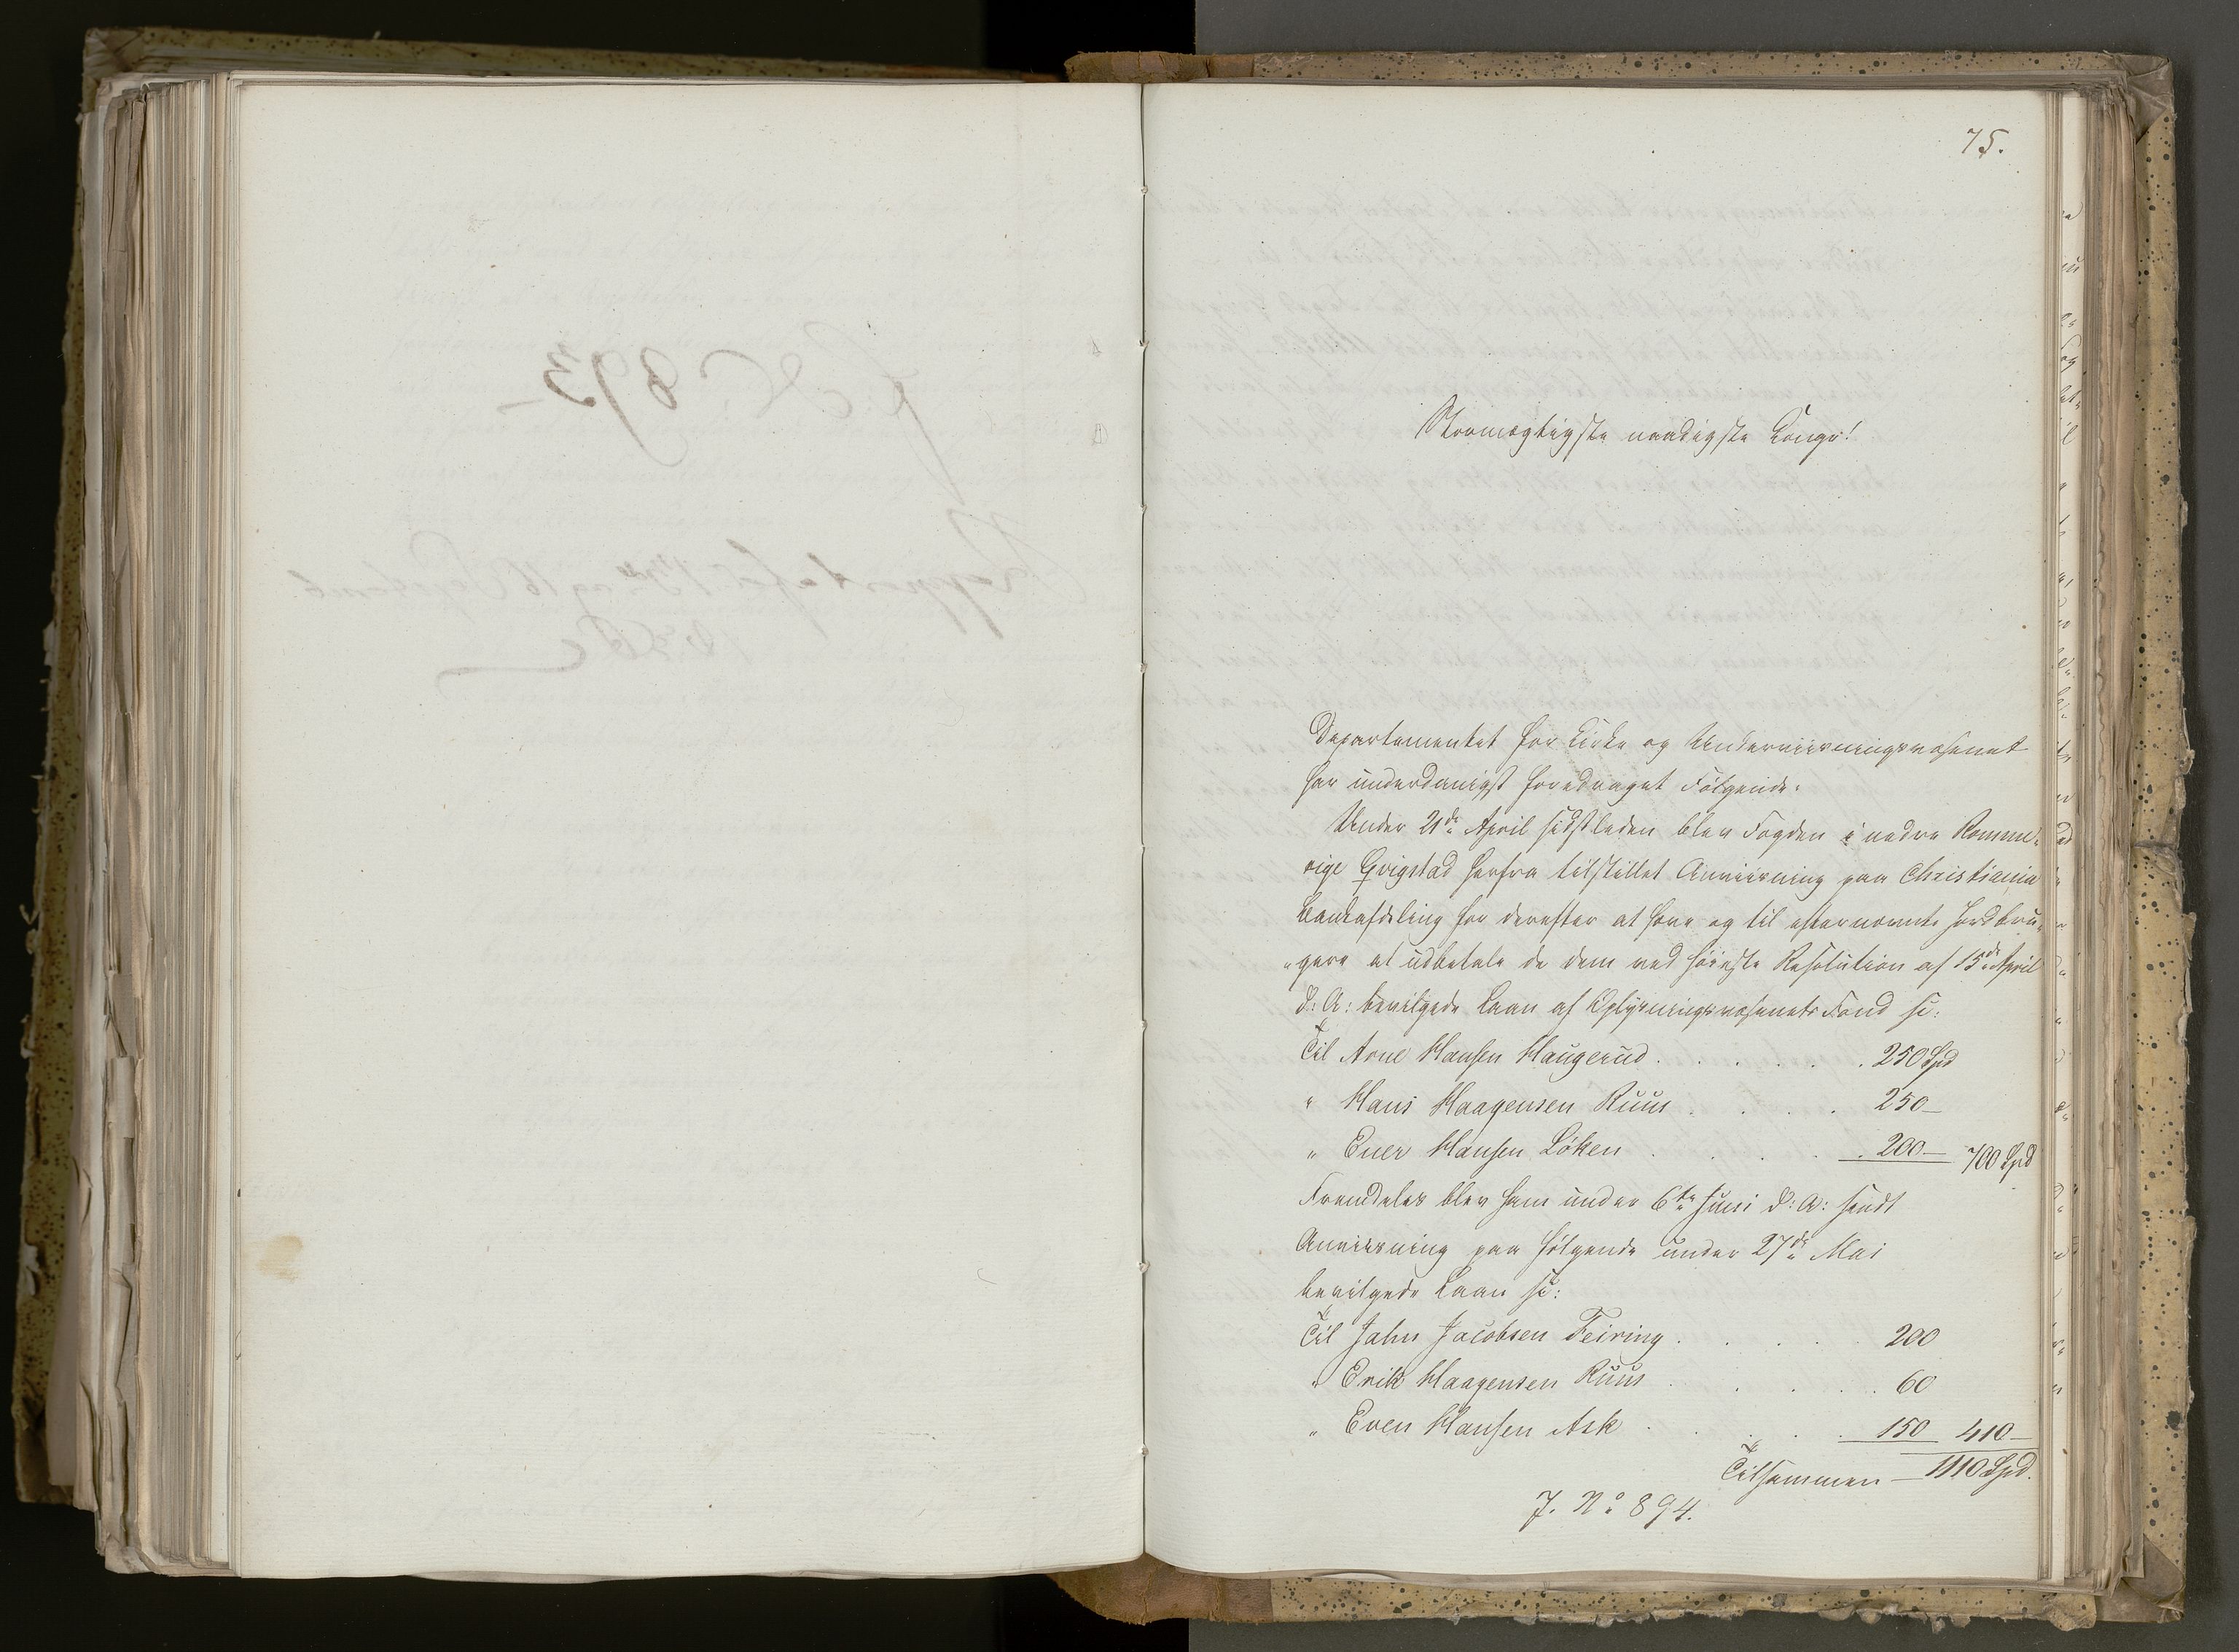 75.
Stormægtigste naadigste Konge!
Departementet for Kirke og Underviisningsvæsenet
har underdanigst foredraget Følgende:
Under 21de April sidstleden blev Fogden i nedre Romme-
rige Qvigstad herfra tilstillet Anviisning paa Christiania
Bankafdeling for derefter at hæve og til efternævnte Jordbru-
"gere at udbetale de dem ved høieste Resolution af 15de April
d: A: bevilgede Laan af Oplysningsvæsenets Fond se:
Til Arne Hansen Haugerud . . . . . 250 Spd
" Hans Haagensen Ruus . . . . 250 —
" Ener Hansen Løken . . . . . 200 — 700 Spd
Fremdeles blev ham under 6te Juni d: A: sendt
Anviisning paa følgende under 27de Mai
bevilgede Laan se:
Til Jahn Jacobsen Feiring . . . . 200
" Erik Haagensen Ruus . . . . 60
" Even Hansen Ask . . . . . 150 410 —
Tilsammen — 1110 Spd.
J. No 894.